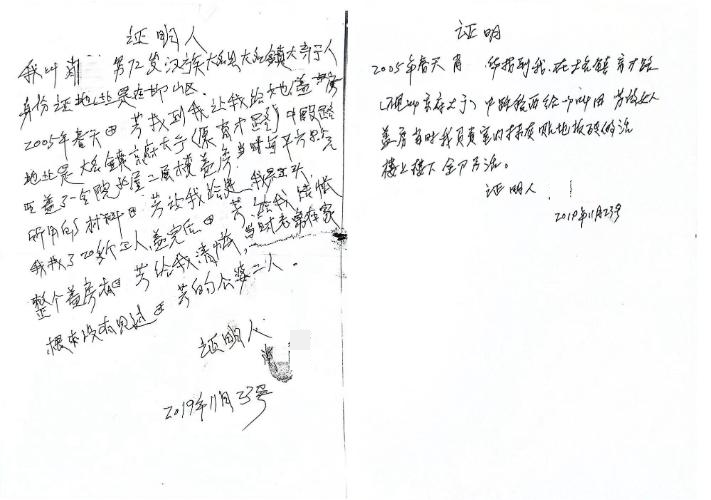 证明人
我叫 男72岁汉族大名县大名镇大寺于人
身份证地址是在邯山区.
2005年春天田 芳找到我让我给她盖
地址是大名镇京府大于(原育才路)中段路
西盖了一全院 屋二层楼盖房当时每平方
所用的材料田 芳让我给
我找了20多个工人,盖完后田 芳给我 帐
整个盖房有田 芳给我清帐,当时
根本没有见过田 芳的公婆二人.
证明人
2019年11月23号
证明
2005年春天肖 华招到我,在大名镇育才路
(现叫京府大于)中段路西给一叫田 芳的女人
盖房当时我负责室内抹灰贴地板砖的活
楼上楼下全部方活。
证明人
2019年11月23号